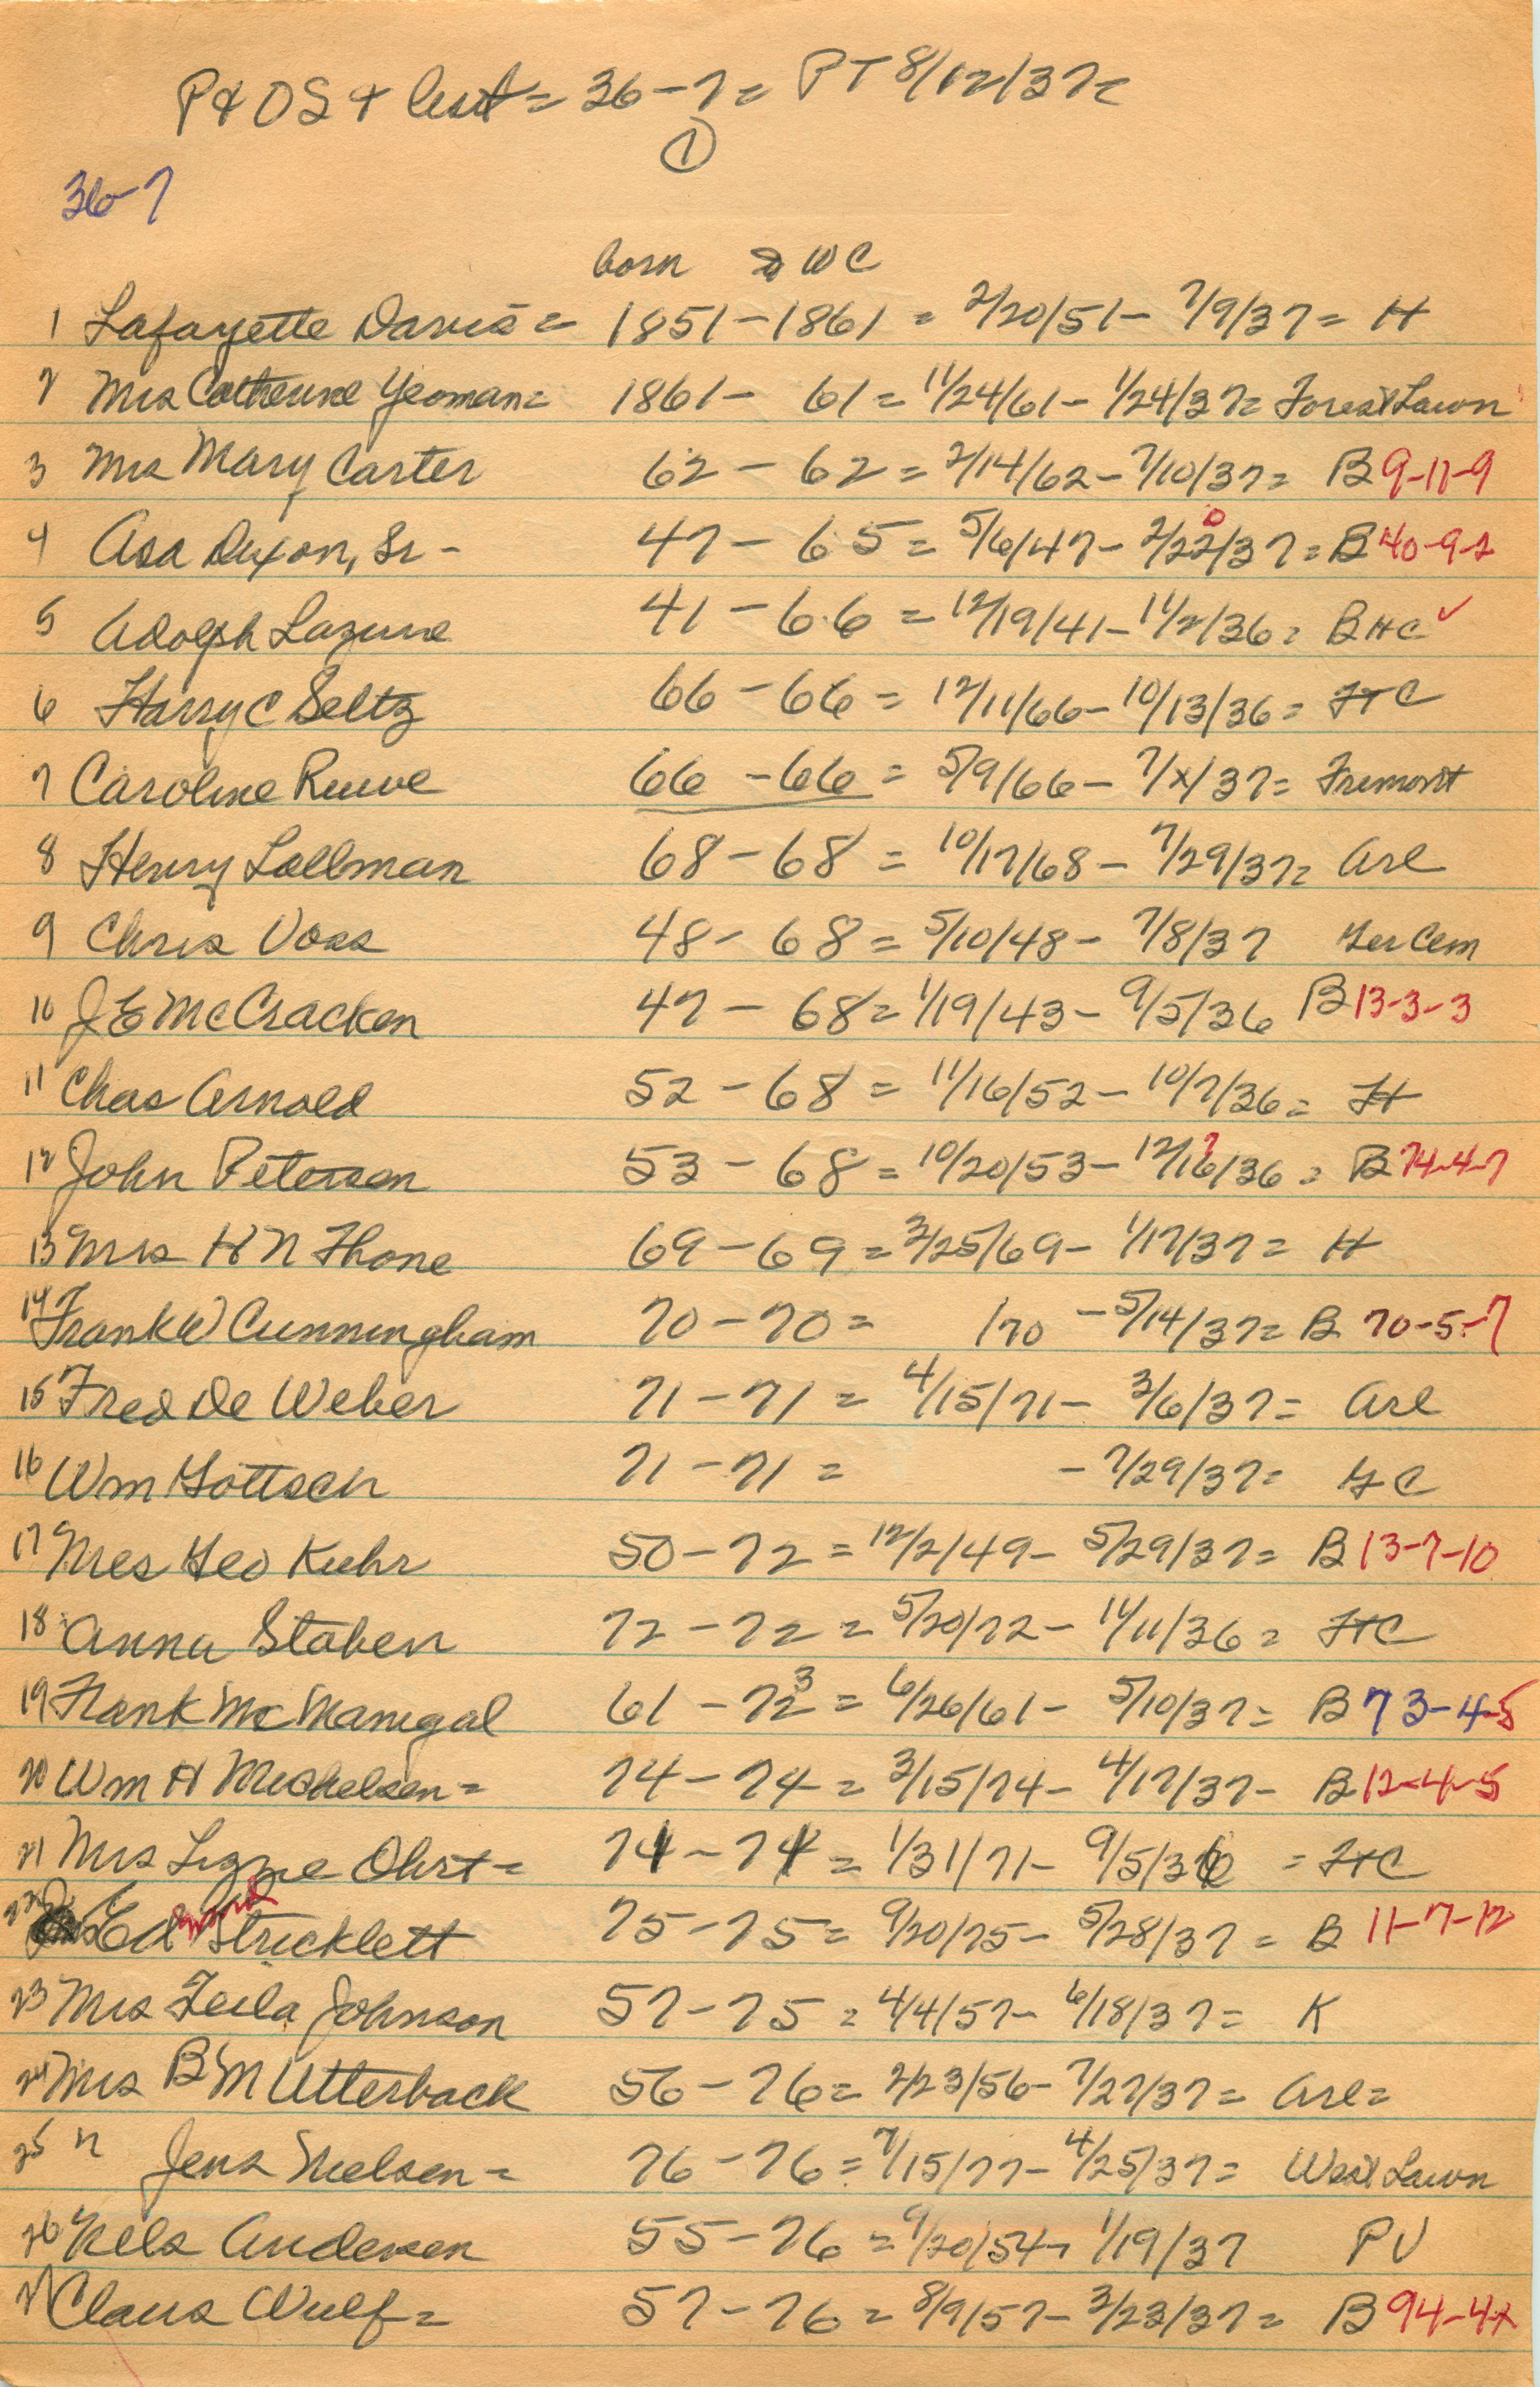 P & OS & List = 36-7 = PT 8/12/37=
1
36-7
born WC
1 Lafayette Davis = 1851-1861 = 2/20/51- 7/9/37= H
2 Mrs Catherine Yeoman= 1861- 61 = 11/24/61- 1/24/37= Forest Lawn
3 Mrs Mary Carter 62 - 62 = 2/14/62- 7/10/37= B 9-11-9
4 Asa Dixon, Sr - 47 - 65 = 5/6/47- 2/22/37= B 40-9-2
0
5 Adolph 41 - 66 = 12/19/41- 11/2/36= B HC ✓
6 Harry C Seltz 66 - 66 = 12/11/66- 10/13/36= HC
7 Caroline Ruwe 66 - 66 = 5/9/66- 7/x/37= Fremont
8 Henry Lollman 68 - 68 = 10/17/68 - 7/29/37= Arl
9 Chris Voss 48- 68 = 5/10/48- 7/8/37 Ger Cem
10 J E McCracken 47 - 68= 1/19/43- 9/5/36 B 13-3-3
11 Chas Arnold 52 - 68 = 11/16/52- 10/7/36= H
12 John Petersen 53 - 68 = 10/20/53- 12/16/36 = B 74-4-7
?
13 Mrs H N Thone 69 - 69 = 3/25/69- 1/17/37= H
14 Frank W Cunningham 70 - 70 = /70 - 5/14/37= B 70-5-7
15 Fred De Weber 71 - 71 = 4/15/71- 3/6/37= Arl
16 Wm Gottsch 71 - 71 = - 7/29/37= GC
17 Mrs Geo Kuhr 50 - 72 = 12/2/49- 5/29/37= B 13-7-10
18 Anna Staben 72 - 72 = 5/20/72- 11/11/36= HC
19 Frank McManigal 61 - 72 3 = 6/26/61- 5/10/37= B 73-4-5
20 Wm H Michelsen = 74 - 74 = 3/15/74- 4/17/37- B 12-4-5
21 Mrs Lizzie Ohrt = 74 - 74 = 1/31/71- 9/5/36 = HC
22 Ed Stricklett 75 - 75 = 9/20/75- 5/28/37 = B 11-7-12
23 Mrs Leila Johnson 57 - 75 = 4/4/57- 6/18/37= K
24 Mrs B M Utterback 56 - 76= 2/23/56- 7/27/37= Arl=
25 " Jens Nielsen = 76 - 76 = 7/15/77- 4/25/37= West Lawn
26 Nels Andersen 55 - 76 = 9/20/54- 1/19/37 PV
27 Claus Wulf = 57 - 76 = 8/9/57- 3/23/37= B 94-4-